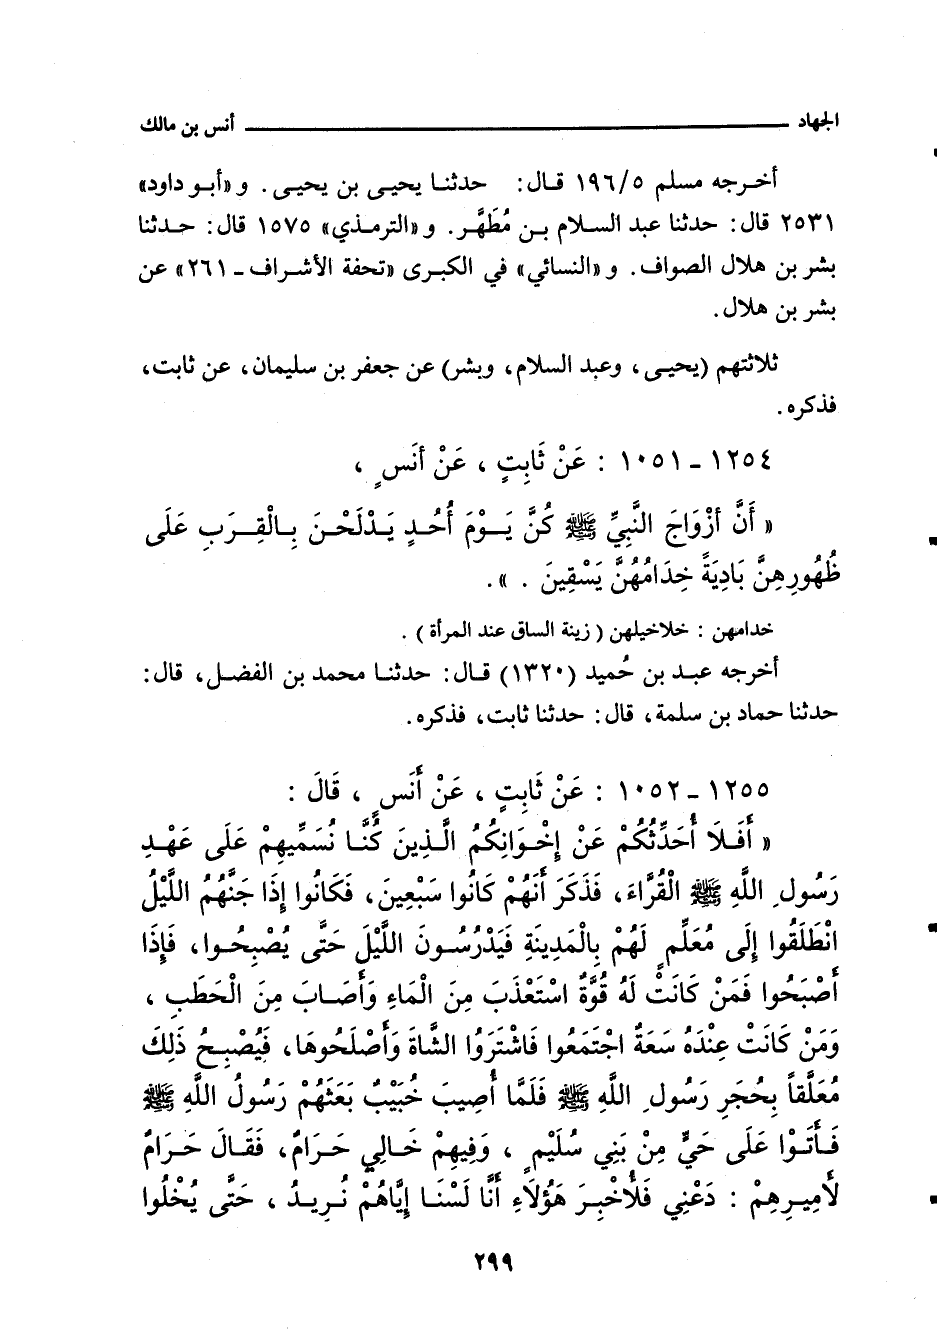 الجهاد ــــــــــ أنس بن مالك
أخرجه مسلم ١٩٦/٥ قال: حدثنا يحيى بن يحيى. و «أبو داود»
٢٥٣١ قال: حدثنا عبد السلام بن مُطَهَّر. و «الترمذي» ١٥٧٥ قال: حدثنا
بشر بن هلال الصواف. و «النسائي» في الكبرى «تحفة الأشراف - ٢٦١» عن
بشر بن هلال.
ثلاثتهم (يحيى، وعبد السلام، وبشر) عن جعفر بن سليمان، عن ثابت،
فذكره.
١٢٥٤ - ١٠٥١ : عَنْ ثَابِتٍ ، عَنْ أَنَسٍ ،
« أَنَّ أَزْوَاجَ النَّبِيِّ ﷺ كُنَّ يَوْمَ أُحُدٍ يَدْلَحْنَ بِالْقِرَبِ عَلَى
ظُهُورِهِنَّ بَادِيَةً خِدَامُهُنَّ يَسْقِينَ . ».
خدامهن : خلاخيلهن ( زينة الساق عند المرأة ) .
أخرجه عبد بن حُميد (١٣٢٠) قال: حدثنا محمد بن الفضل، قال:
حدثنا حماد بن سلمة، قال: حدثنا ثابت، فذكره.
١٢٥٥ - ١٠٥٢ : عَنْ ثَابِتٍ ، عَنْ أَنَسٍ ، قَالَ :
« أَفَلَا أُحَدِّثُكُمْ عَنْ إِخْوَانِكُمُ الَّذِينَ كُنَّا نُسَمِّيهِمْ عَلَى عَهْدِ
رَسُولِ اللَّهِ ﷺ الْقُرَّاءَ، فَذَكَرَ أَنَهُمْ كَانُوا سَبْعِينَ، فَكَانُوا إِذَا جَنَّهُمُ اللَّيْلُ
انْطَلَقُوا إِلَى مُعَلِّمٍ لَهُمْ بِالْمَدِينَةِ فَيَدْرُسُونَ اللَّيْلَ حَتَّى يُصْبِحُوا، فَإِذَا
أَصْبَحُوا فَمَنْ كَانَتْ لَهُ قُوَّةٌ اسْتَعْذَبَ مِنَ الْمَاءِ وَأَصَابَ مِنَ الْحَطَبِ ،
وَمَنْ كَانَتْ عِنْدَهُ سَعَةٌ اجْتَمَعُوا فَاشْتَرَوُا الشَّاةَ وَأَصْلَحُوهَا، فَيُصْبِحُ ذَلِكَ
مُعَلَّقاً بِحُجَرِ رَسُولِ اللَّهِ ﷺ فَلَمَّا أُصِيبَ خُبَيْبٌ بَعَثَهُمْ رَسُولُ اللَّهِ ﷺ
فَأَتَوْا عَلَى حَيٍّ مِنْ بَنِي سُلَيْمٍ ، وَفِيهِمْ خَالِي حَرَامٌ، فَقَالَ حَرَامٌ
لأَمِيرِهِمْ : دَعْنِي فَلأُخْبِرَ هَؤُلَاءِ أَنَّا لَسْنَا إِيَّاهُمْ نُرِيدُ ، حَتَّى يُخْلُوا
٢٩٩